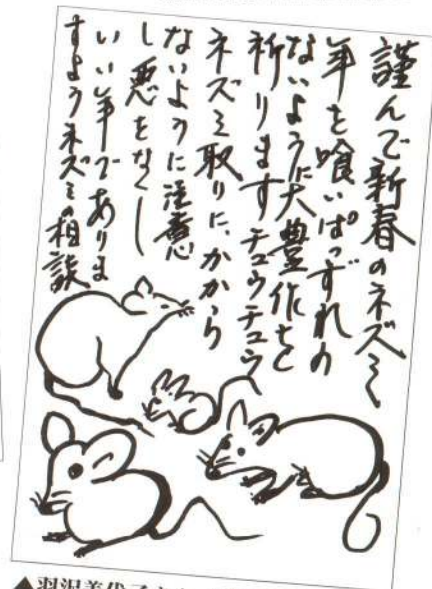 謹んで新春のネズミ
年を喰いぱっずれの
ないように大豊作を
祈りますチュウチュウ
ネズミ取りに、かから
ないように注意
し悪をなくし
いい年でありま
すようネズミの相談
▲羽沢美代子さ